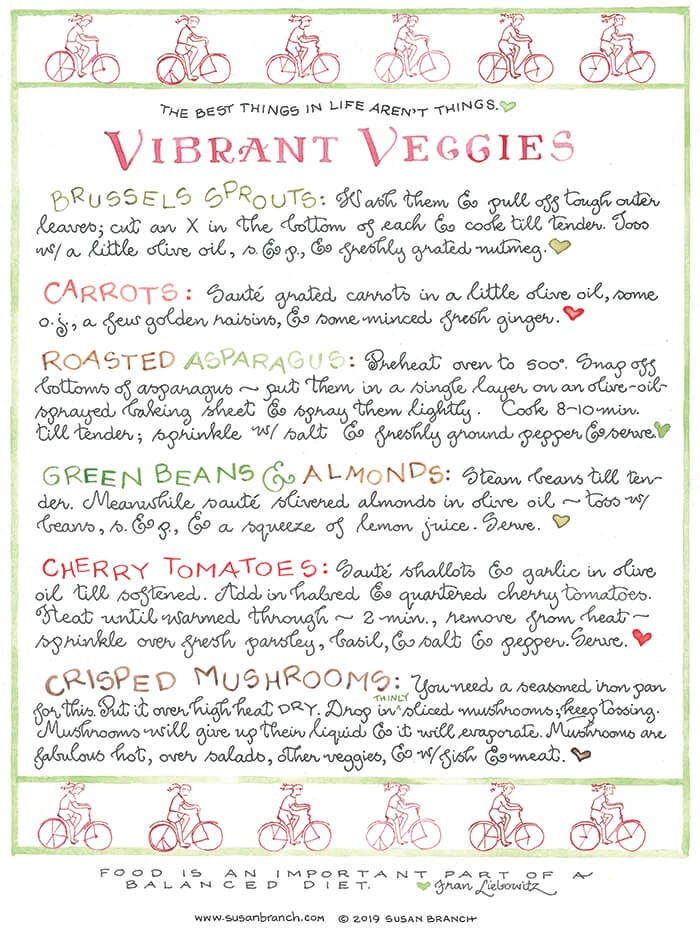 THE BEST THINGS IN LIFE AREN'T THINGS.
VIBRANT VEGGIES
BRUSSELS SPROUTS: Wash them & pull off tough outer
leaves; cut an X in the bottom of each & cook till tender. Toss
w/ a little olive oil, s. & p., & freshly grated nutmeg.
CARROTS: Sauté grated carrots in a little olive oil, some
o.j., a few golden raisins, & some minced fresh ginger.
ROASTED ASPARAGUS: Preheat oven to 500°. Snap off
bottoms of asparagus ~ put them in a single layer on an olive-oil-
sprayed baking sheet & spray them lightly. Cook 8-10 min.
till tender; sprinkle w/ salt & freshly ground pepper & serve.
GREEN BEANS & ALMONDS: Steam beans till ten-
der. Meanwhile sauté slivered almonds in olive oil ~ toss w/
beans, s. & p., & a squeeze of lemon juice. Serve.
CHERRY TOMATOES: Sauté shallots & garlic in olive
oil till softened. Add in halved & quartered cherry tomatoes.
Heat until warmed through ~ 2 min., remove from heat ~
sprinkle over fresh parsley, basil, & salt & pepper. Serve.
CRISPED MUSHROOMS: You need a seasoned iron pan
for this. Put it over high heat DRY. Drop in THINLY sliced mushrooms; keep tossing.
Mushrooms will give up their liquid & it will evaporate. Mushrooms are
fabulous hot, over salads, other veggies, & w/ fish & meat.
FOOD IS AN IMPORTANT PART OF A
BALANCED DIET. Fran Liebowitz
www.susanbranch.com © 2019 SUSAN BRANCH